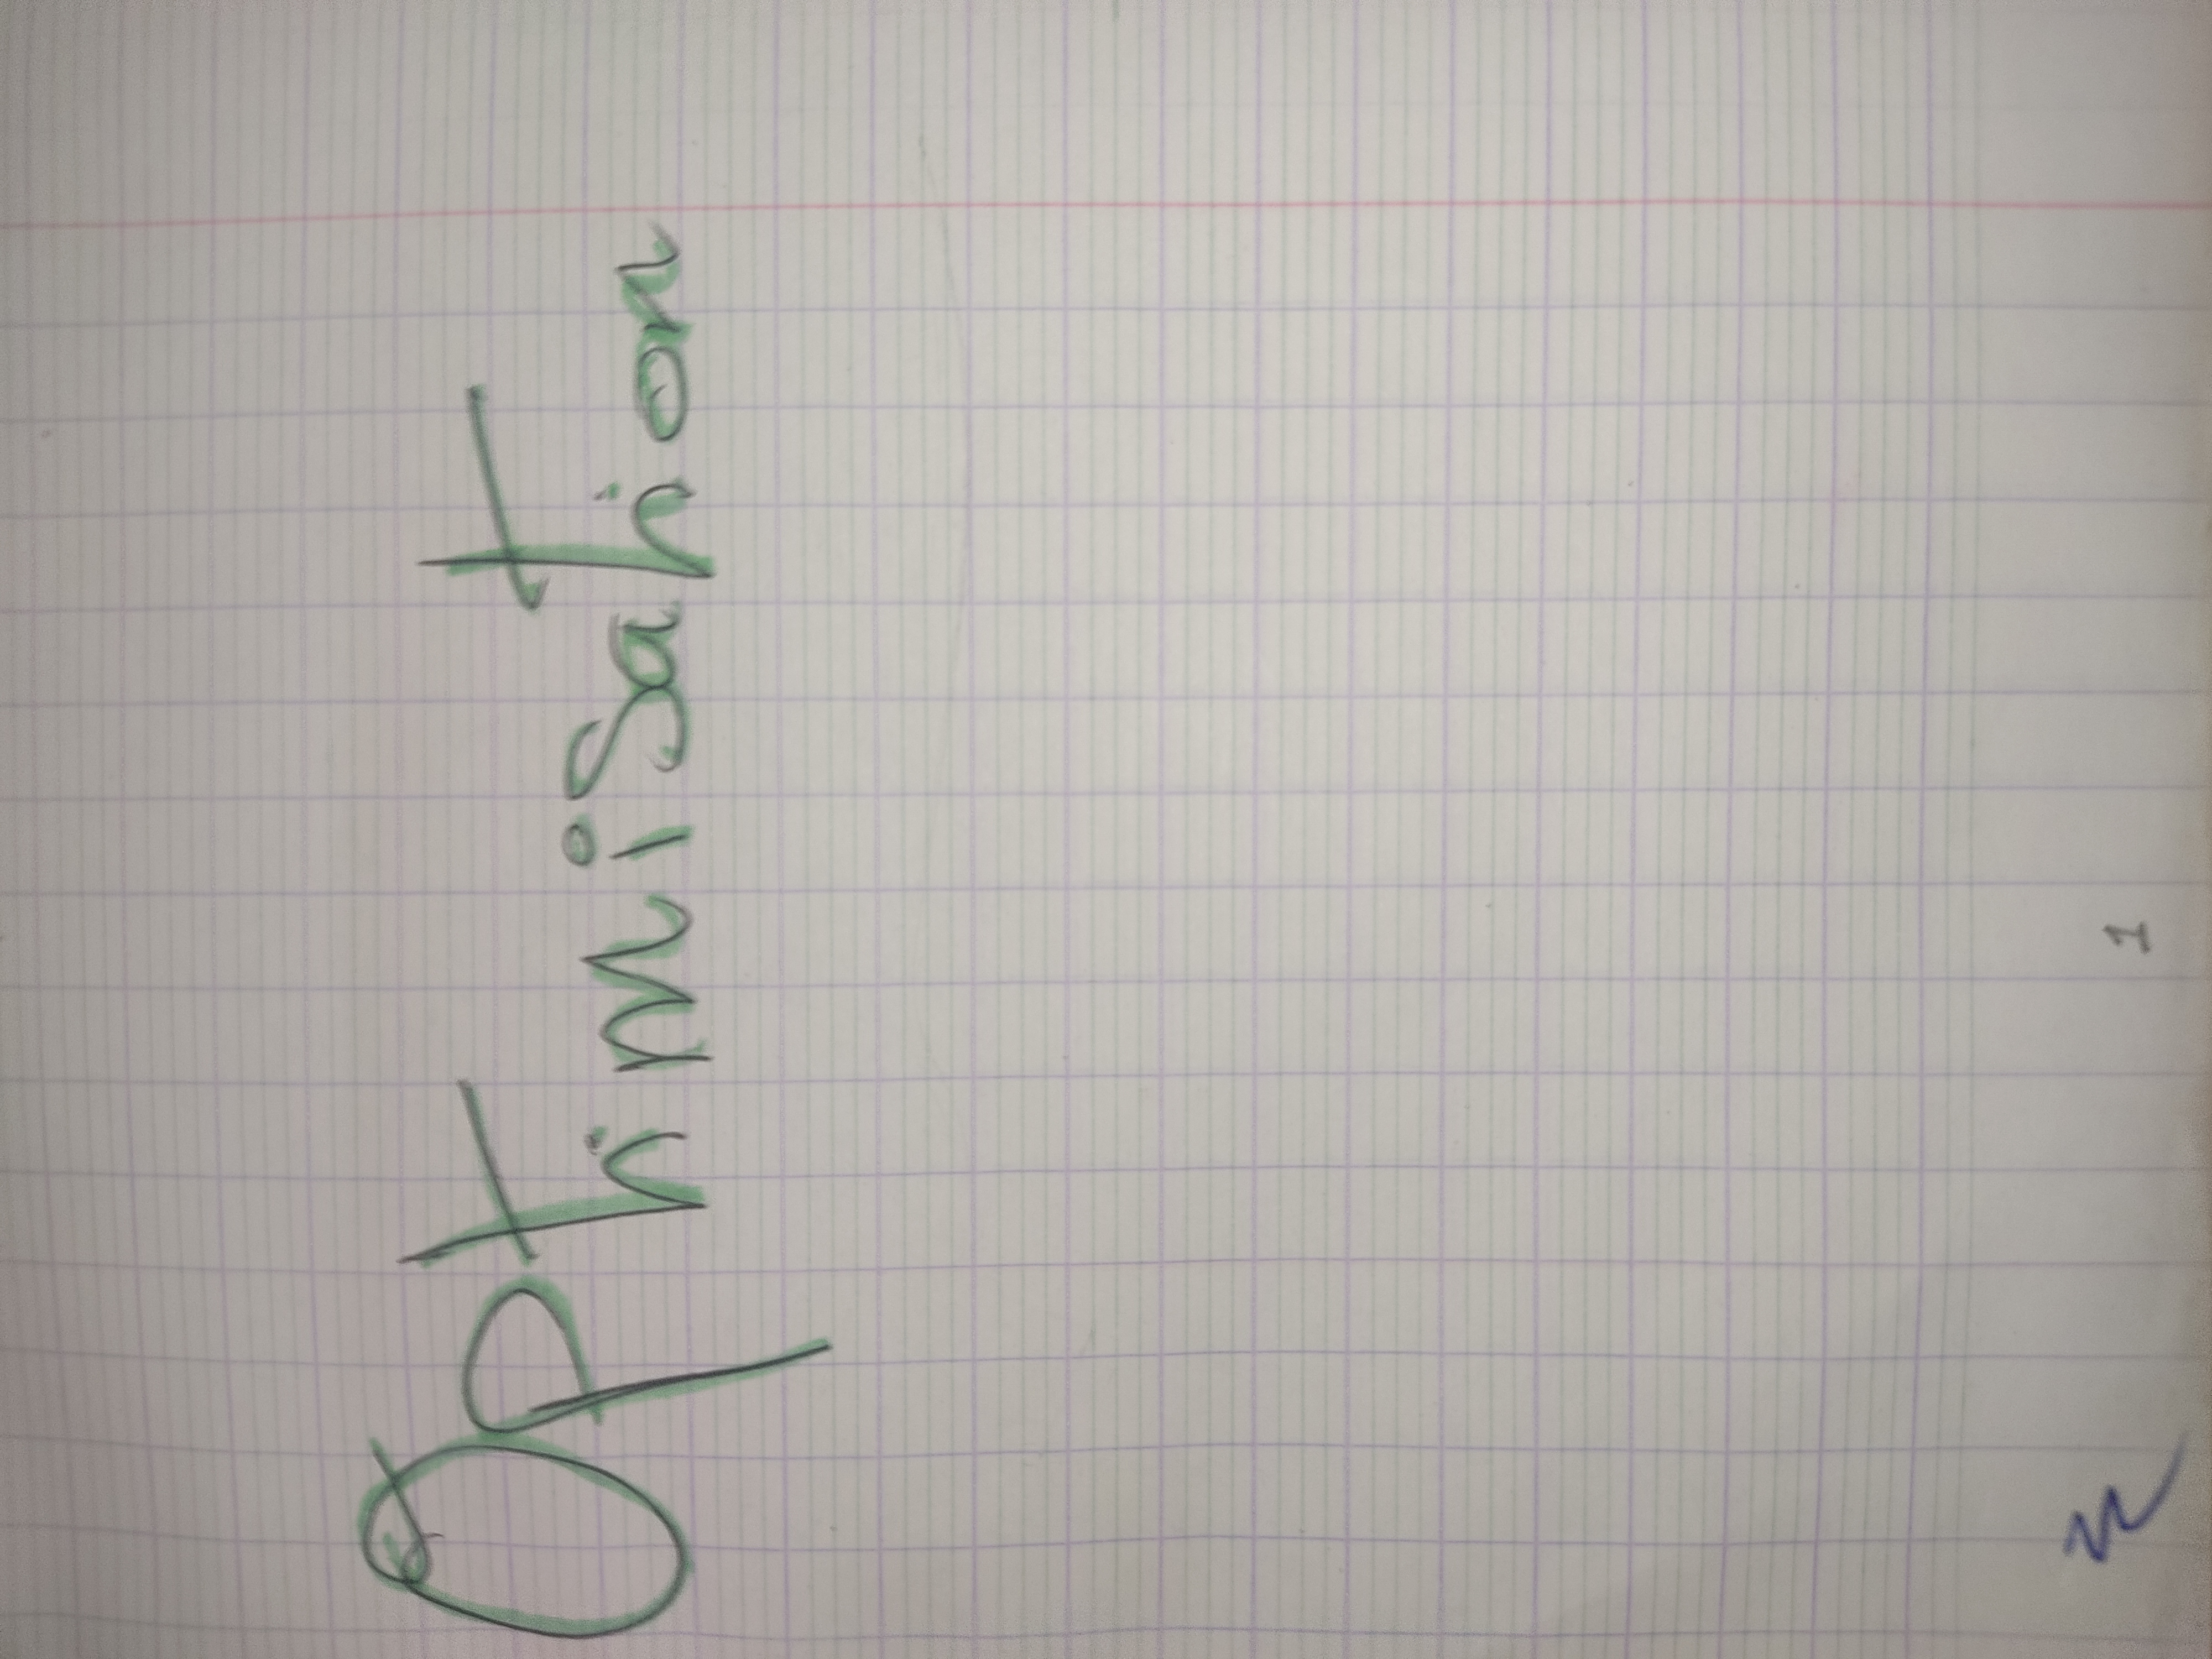 Optimisation
1